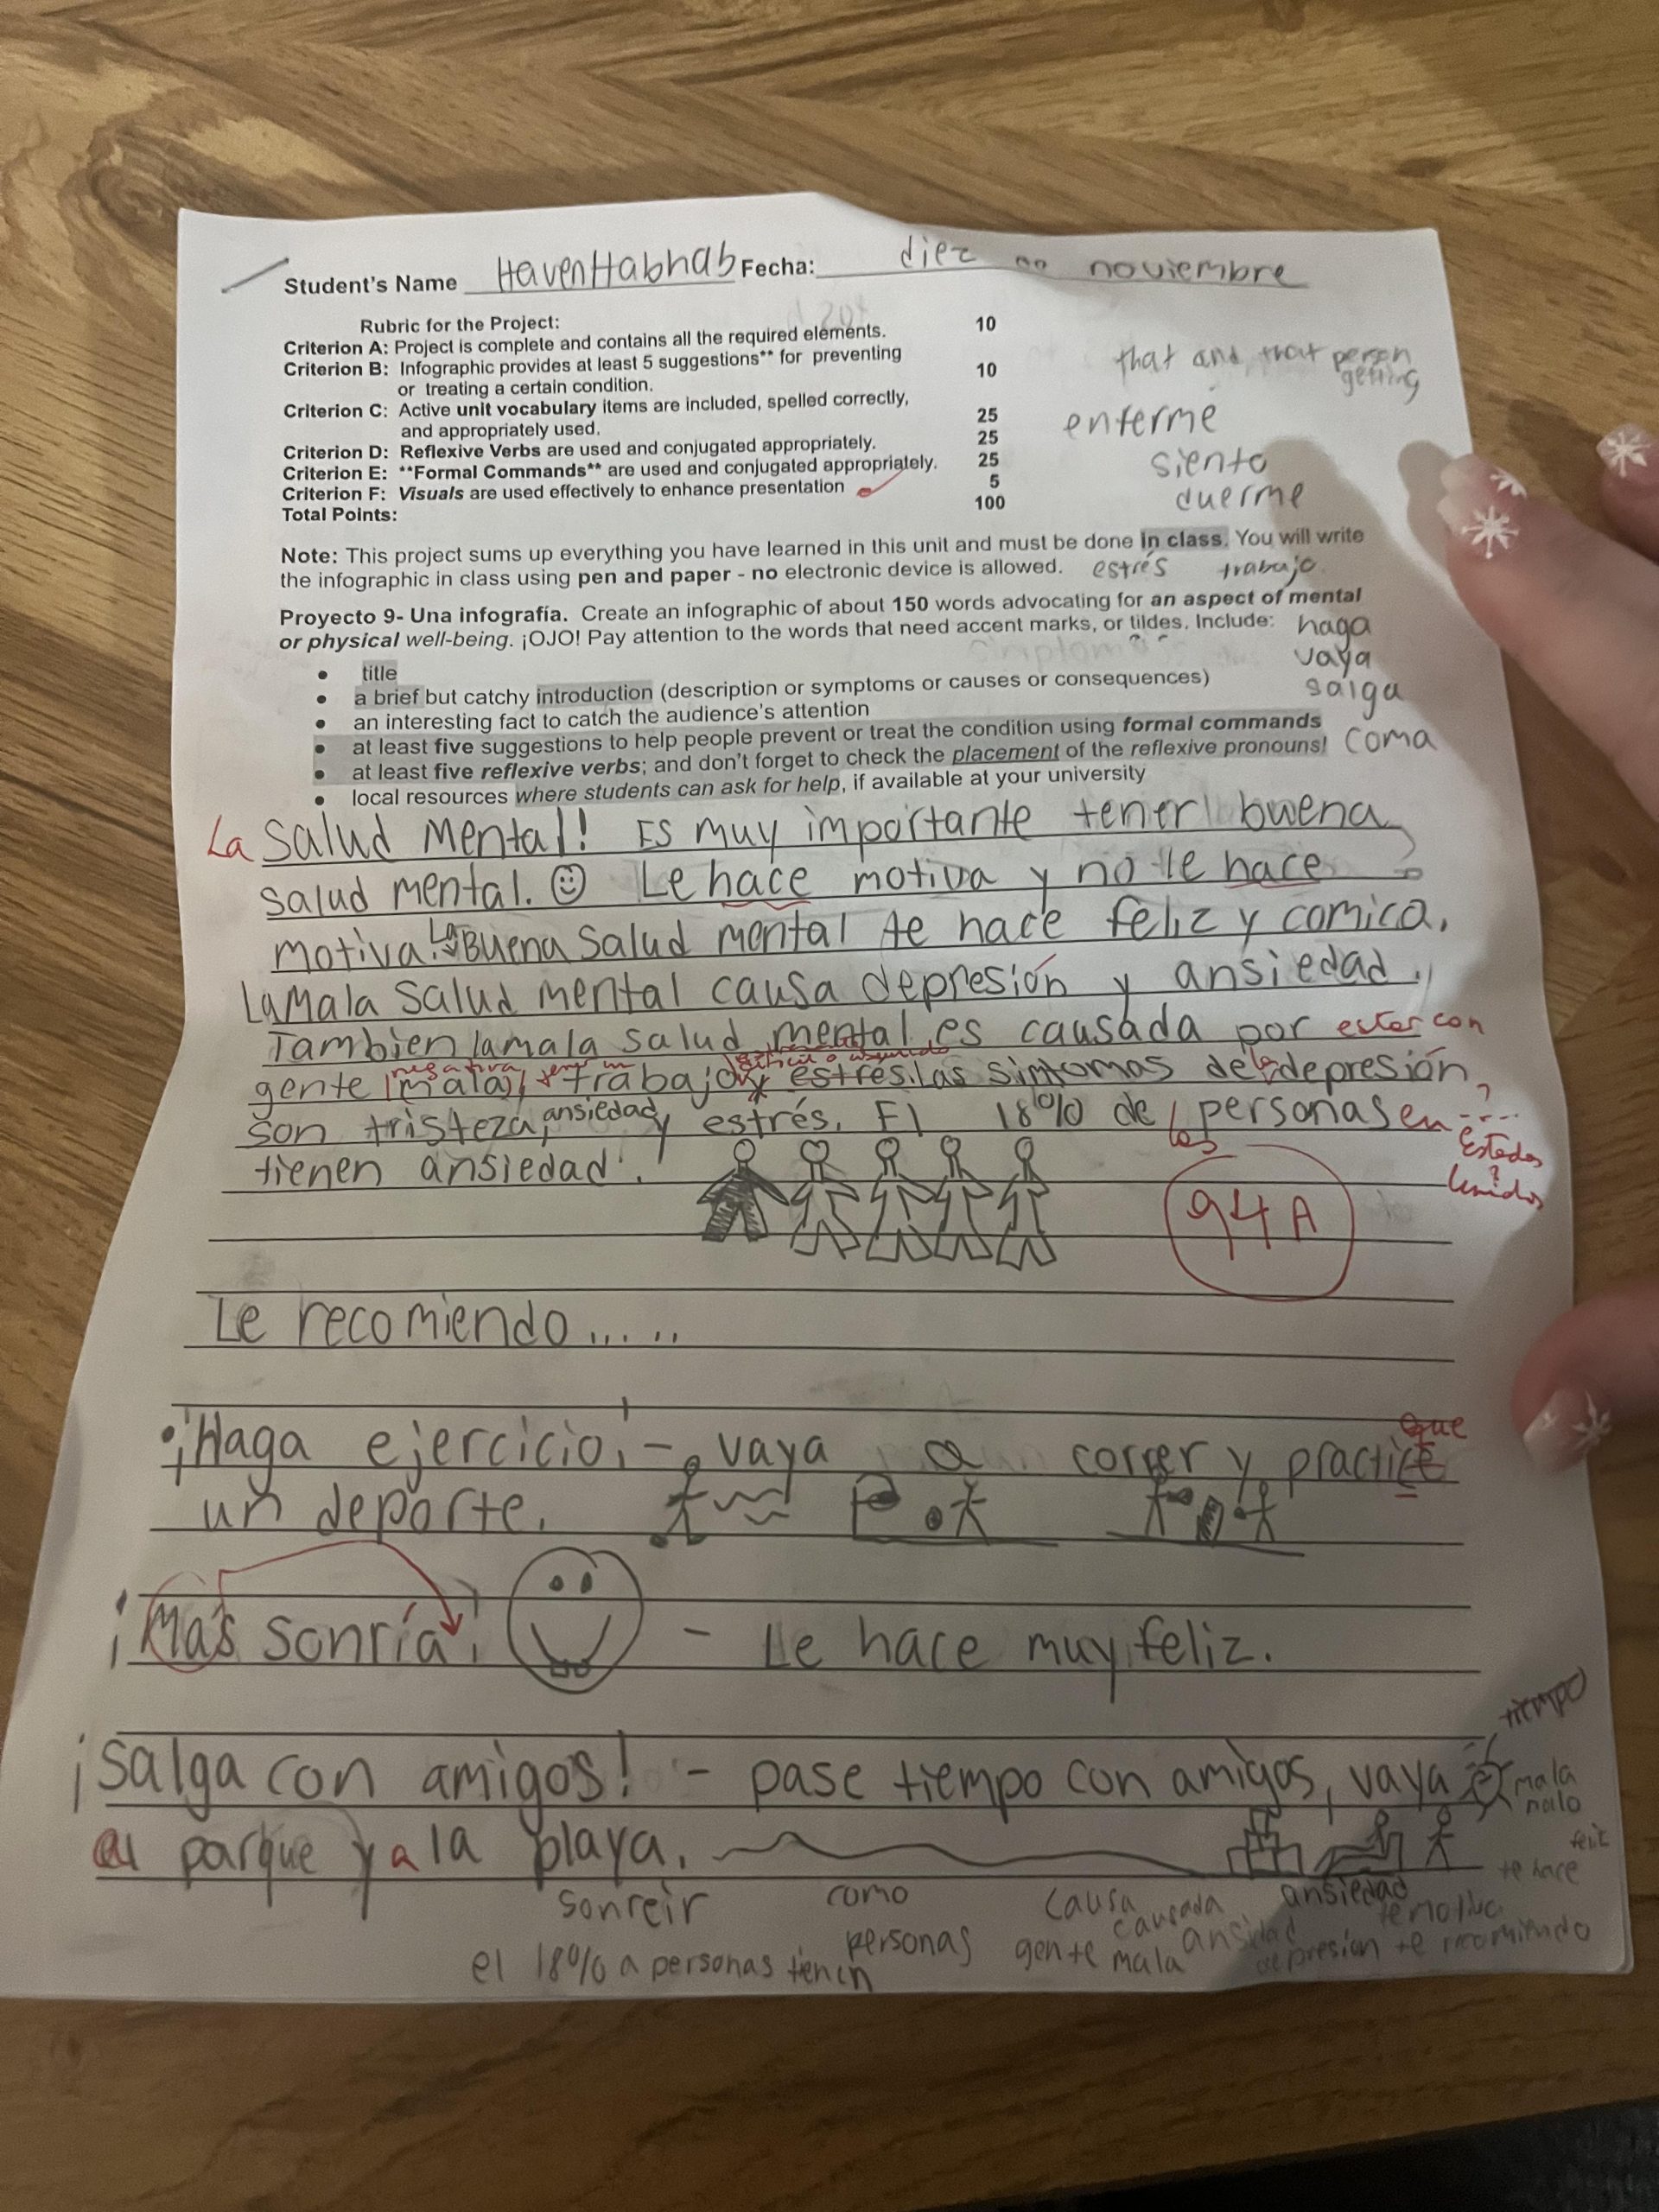 Student's Name HavenHabhab Fecha: diez noviembre
Rubric for the Project:
Criterion A: Project is complete and contains all the required elements. 10
Criterion B: Infographic provides at least 5 suggestions** for preventing
or treating a certain condition. 10
that and that person
getting
Criterion C: Active unit vocabulary items are included, spelled correctly,
and appropriately used. 25
enferme
Criterion D: Reflexive Verbs are used and conjugated appropriately. 25
siento
Criterion E: **Formal Commands** are used and conjugated appropriately. 25
Criterion F: Visuals are used effectively to enhance presentation 5
duerme
Total Points: 100
Note: This project sums up everything you have learned in this unit and must be done in class. You will write
the infographic in class using pen and paper - no electronic device is allowed. estrés trabajo
Proyecto 9- Una infografía. Create an infographic of about 150 words advocating for an aspect of mental
or physical well-being. ¡OJO! Pay attention to the words that need accent marks, or tildes. Include:
haga
vaya
salga
coma
• title
• a brief but catchy introduction (description or symptoms or causes or consequences)
• an interesting fact to catch the audience's attention
• at least five suggestions to help people prevent or treat the condition using formal commands
• at least five reflexive verbs; and don't forget to check the placement of the reflexive pronouns!
• local resources where students can ask for help, if available at your university
La Salud Mental! Es muy importante tener buena
salud mental. Le hace motiva y no le hace
motiva. La Buena salud mental te hace feliz y comica.
La Mala salud mental causa depresión y ansiedad.
Tambien la mala salud mental es causada por estar con
negativa difícil o
gente (mala), trabajo y estrés. Las sintomas de la depresión
son tristeza, ansiedad y estrés. El 18% de las personas en
Estados
Unidos
tienen ansiedad.
94 A
Le recomiendo.....
que
• ¡Haga ejercicio! - vaya a correr y practice
un deporte.
¡Más sonría! - Le hace muy feliz.
tiempo
¡Salga con amigos! - pase tiempo con amigos, vaya
mala
malo
al parque y a la playa.
feliz
te hace
sonreír como causa causada ansiedad
personas gente mala ansidad
el 18% a personas tienen depresion te recomiendo